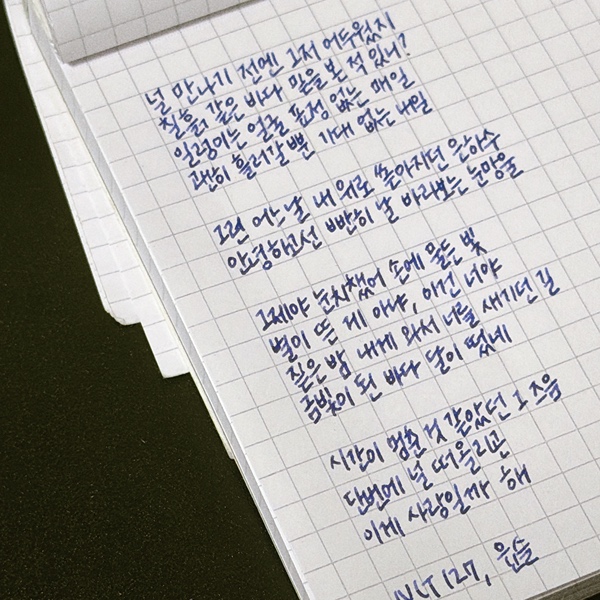 널 만나기 전엔 그저 어두웠지
칠흙 같은 바다 믿을 본 적 있니?
일렁이는 얼굴 표정 없는 매일
괜히 흘러갈 뿐 기대 없는 내일
그런 어느날 내 위로 쏟아지던 은하수
안녕하고선 빤히 날 바라보는 눈망울
그제야 눈치챘어 손에 물든 빛
별이 뜬 게 아냐, 이건 너야
짙은 밤 내게 와서 너를 새기던 길
금빛이 된 바다 달이 떴네
시간이 멈춘 것 같았던 그 즈음
단번에 널 떠올리곤
이게 사랑일까 해
NCT 127, 윤슬